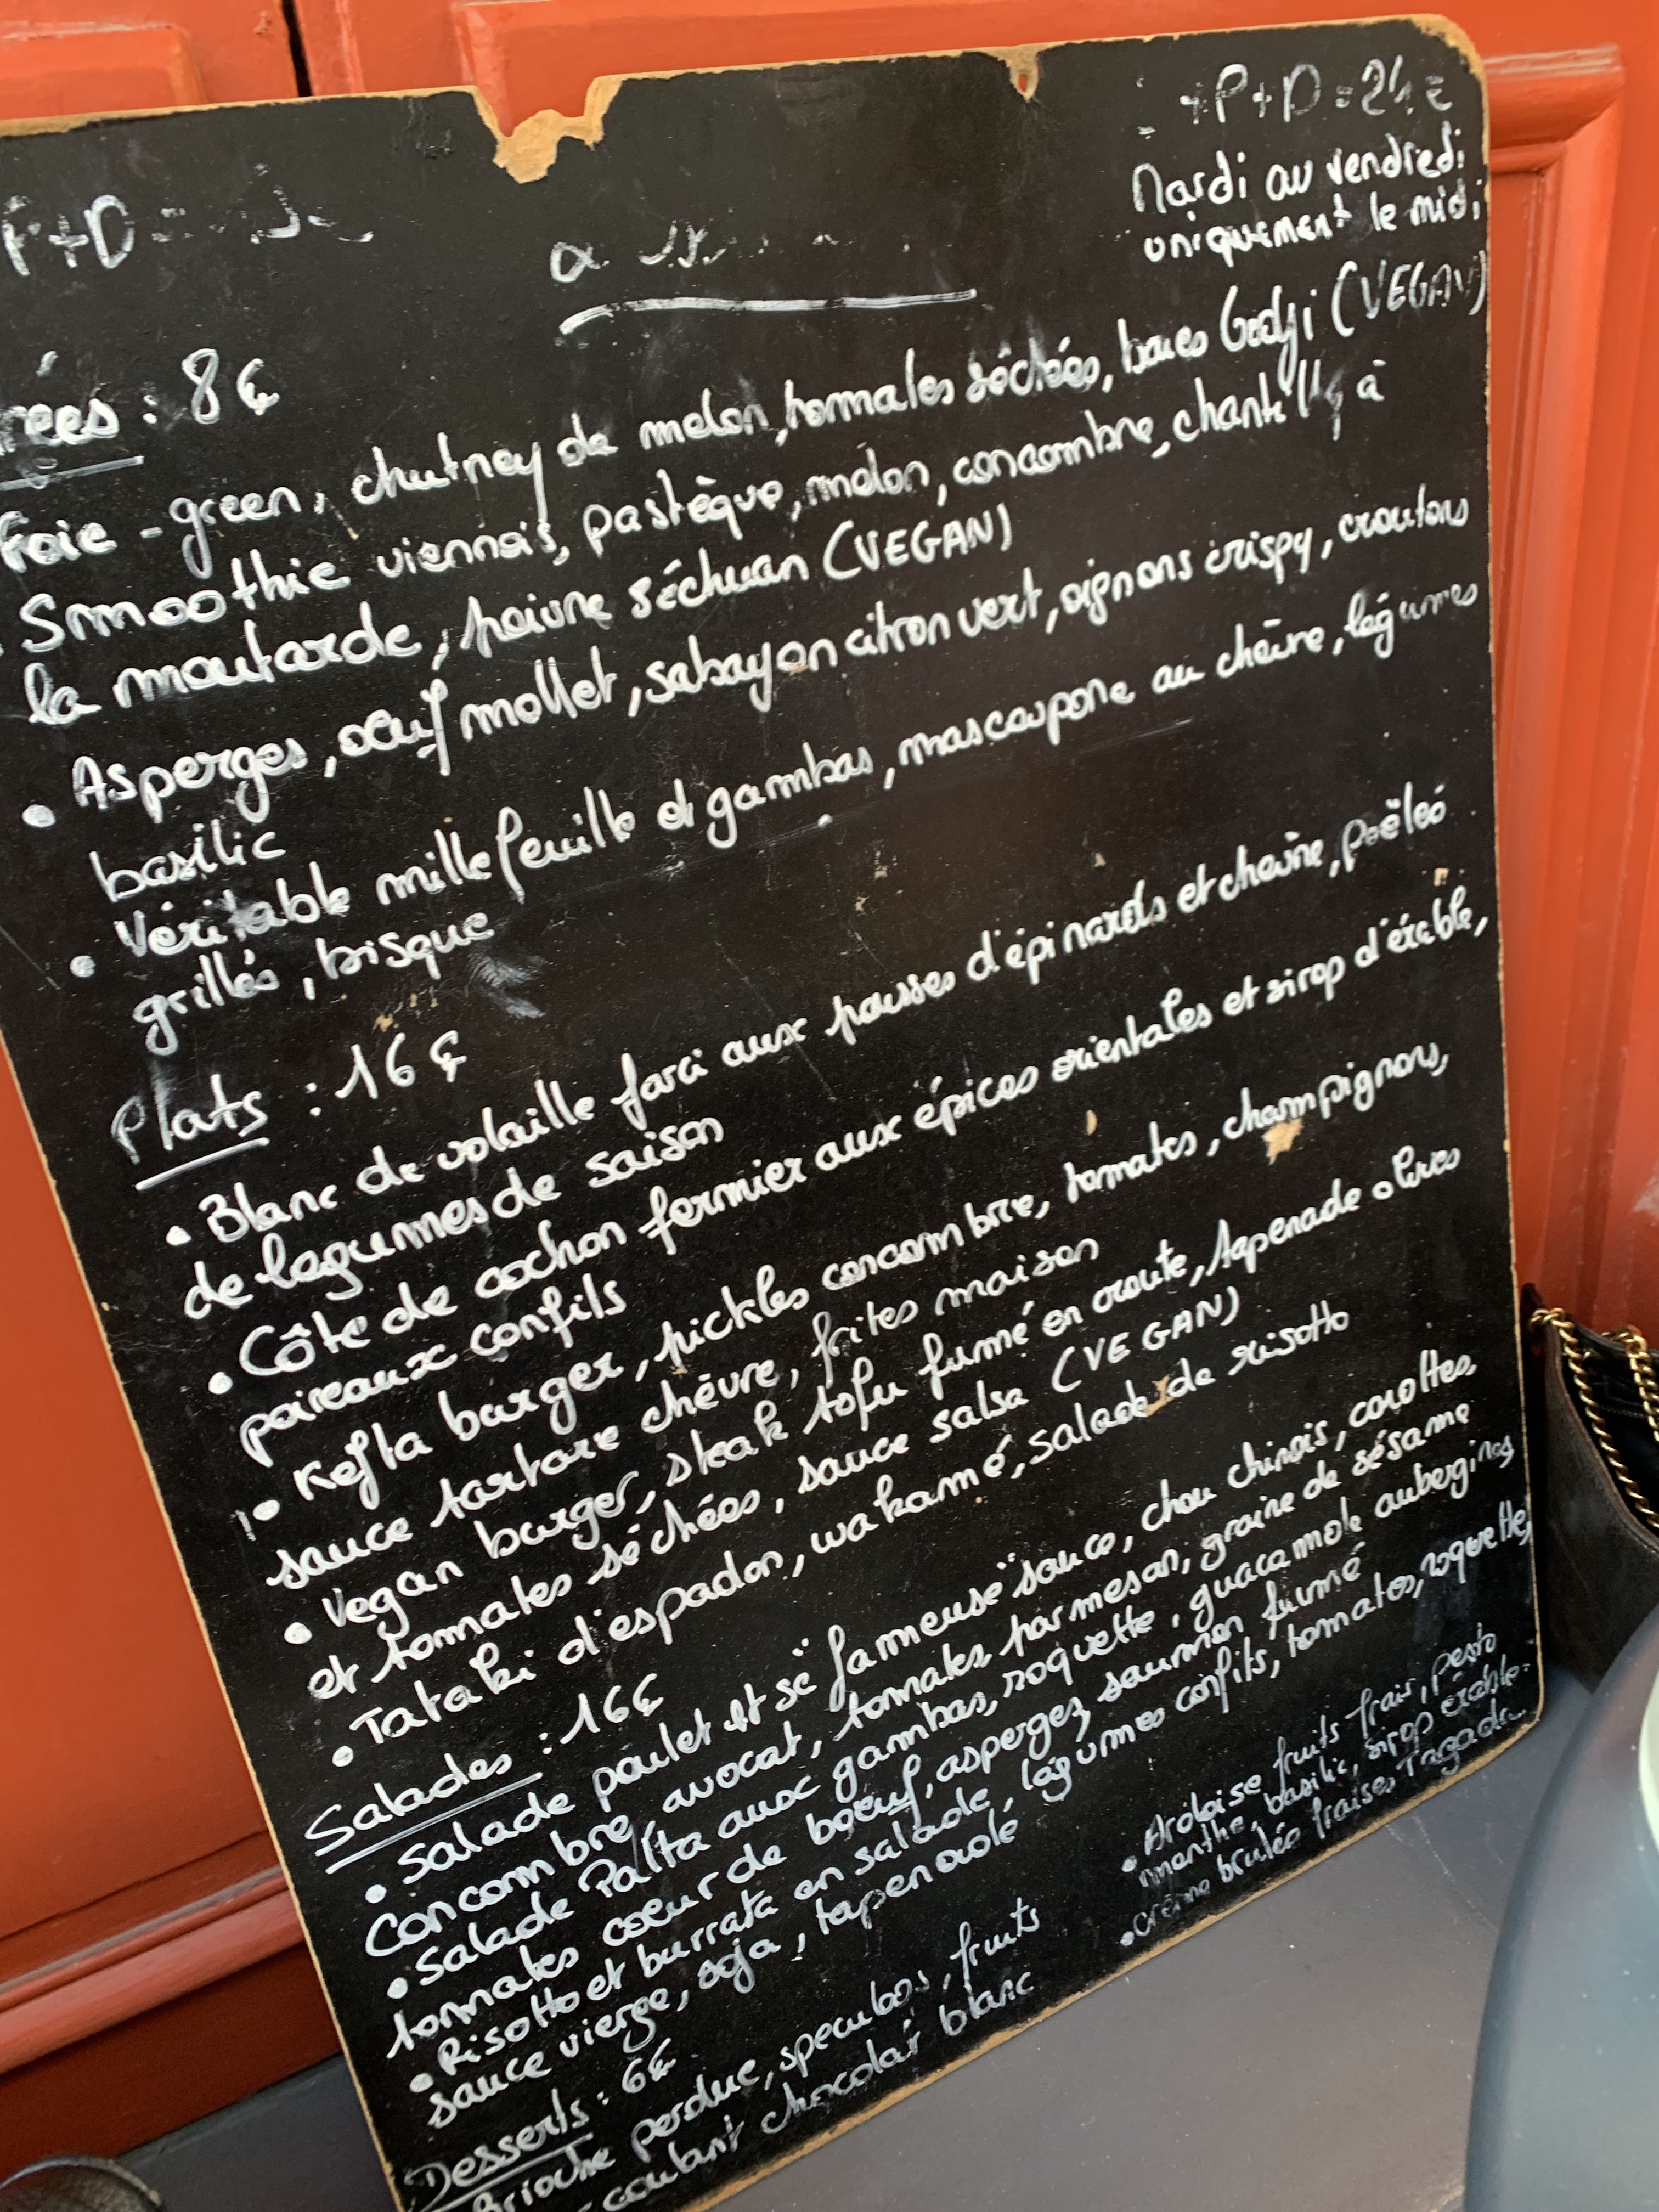 +P+D=24€
Mardi au vendredi
uniquement le midi
P+D=
rées : 8€
Foie-green, chutney de melon, tomates séchées, baies Godji (VEGAN)
Smoothie viennois, pastèque, melon, concombre, chantilly à
la moutarde, poivre séchuan (VEGAN)
• Asperges, oeuf mollet, sabayon citron vert, oignons crispy, croutons
basilic
• Véritable millefeuille et gambas, mascarpone au chèvre, légumes
grillés, bisque
Plats : 16€
• Blanc de volaille farci aux pousses d'épinards et chèvre, poëleé
de legumes de saison
• Côte de cochon fermier aux épices orientales et sirop d'érable,
poireaux confits
• Kefta burger, pickles concombre, tomates, champignons,
sauce tartare chèvre, frites maison
• Vegan burger, steak tofu fumé en croute, tapenade olives
et tomates séchées, sauce salsa (VEGAN)
• Tataki d'espadon, wakamé, salade de risotto
Salades : 16€
• Salade poulet et së "fameuse" sauce, chou chinois, carottes,
concombre, avocat, tomates, parmesan, graine de sésame
• Salade Palta aux gambas, roquette, guacamole aubergines
tomates coeur de boeuf, asperges, saumon fumé
• Risotto et burrata en salade, légumes confits, tomates, roquette,
sauce vierge, soja, tapenade
Desserts : 6€
Brioche perdue, speculoos, fruits
coulant chocolat blanc
• Ardoise fruits frais, pesto
menthe, basilic, sirop érable
• Crème brulée fraises Tagada